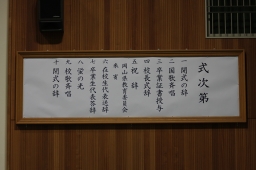 式次第
一 開式の辞
二 国歌斉唱
三 卒業証書授与
四 校長式辞
五 祝辞
岡山県教育委員会
来賓
六 在校生代表送辞
七 卒業生代表答辞
八 蛍の光
九 校歌斉唱
十 閉式の辞